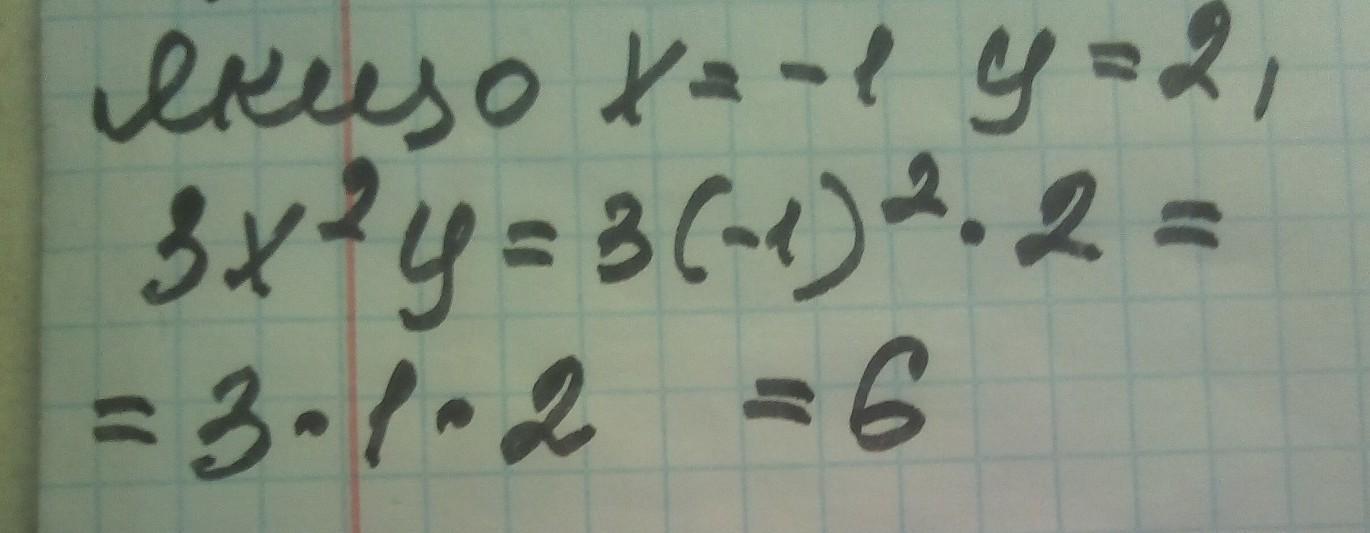 Якщо x = -1 y = 2,
3x²y = 3(-1)² · 2 =
= 3 · 1 · 2 = 6